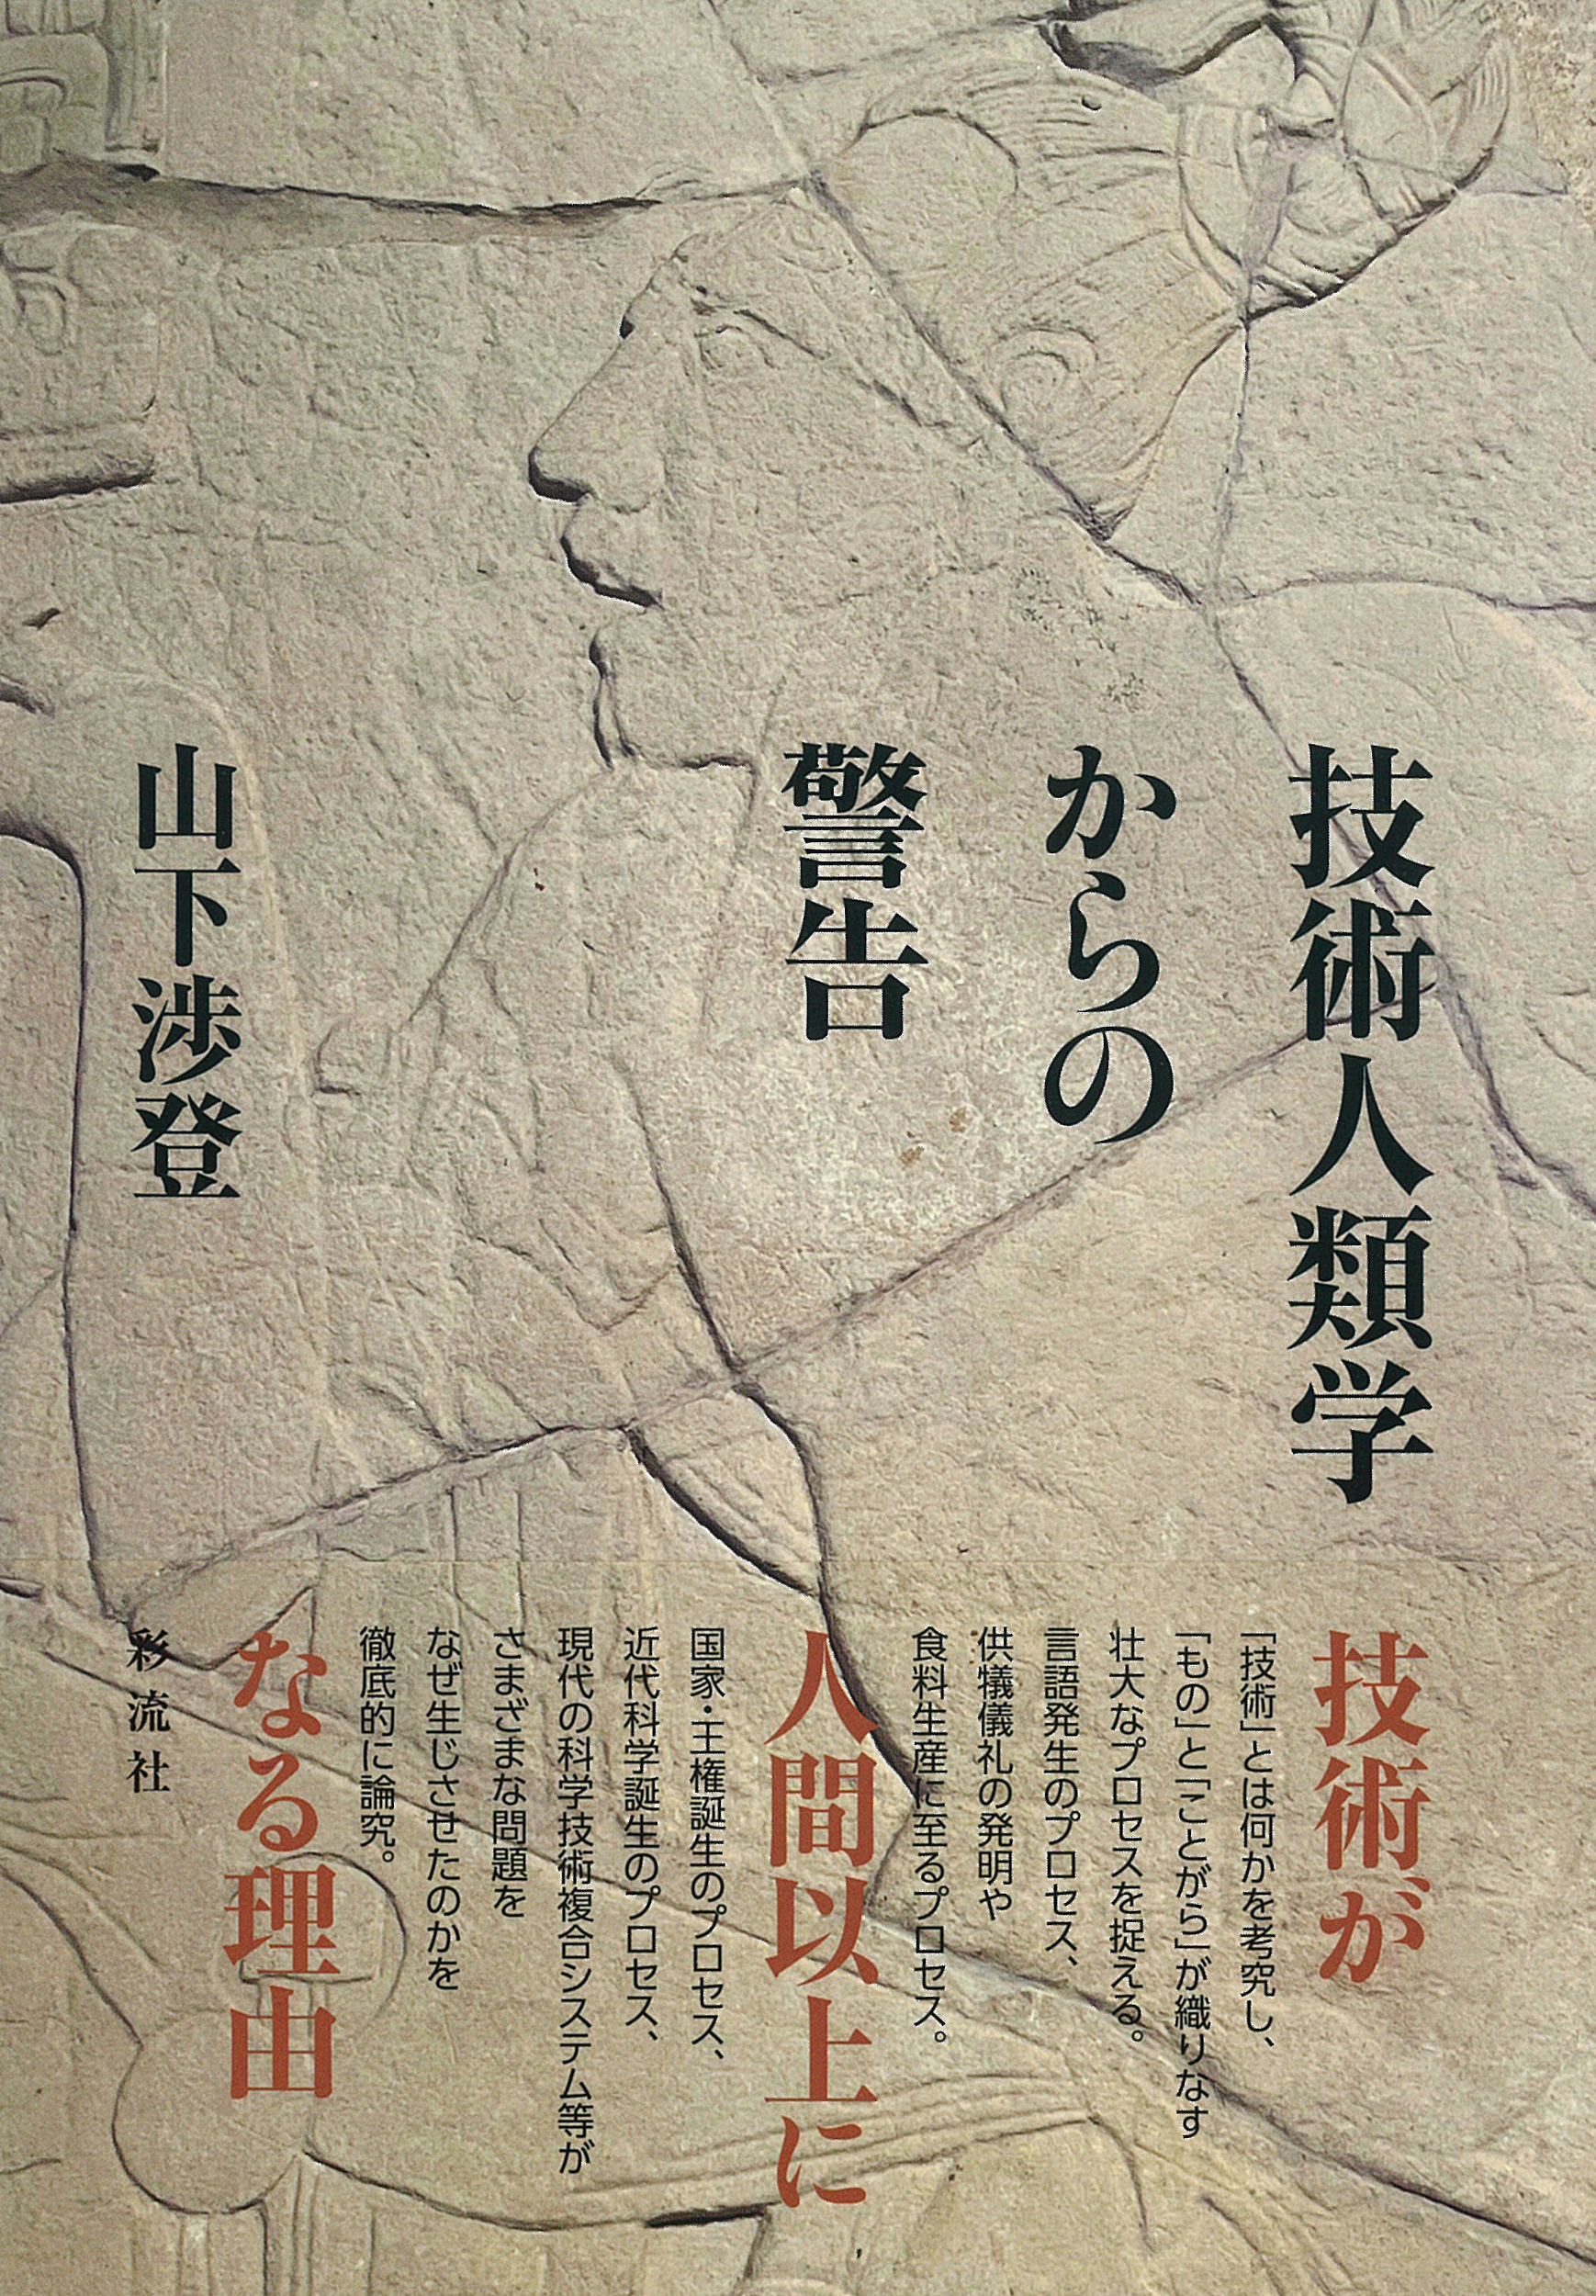 技術人類学
からの
警告
山下渉登
技術が
「技術」とは何かを考究し、
「もの」と「ことがら」が織りなす
壮大なプロセスを捉える。
言語発生のプロセス、
供犠儀礼の発明や
食料生産に至るプロセス。
人間以上に
国家・王権誕生のプロセス、
近代科学誕生のプロセス、
現代の科学技術複合システム等が
さまざまな問題を
なぜ生じさせたのかを
徹底的に論究。
なる理由
彩流社